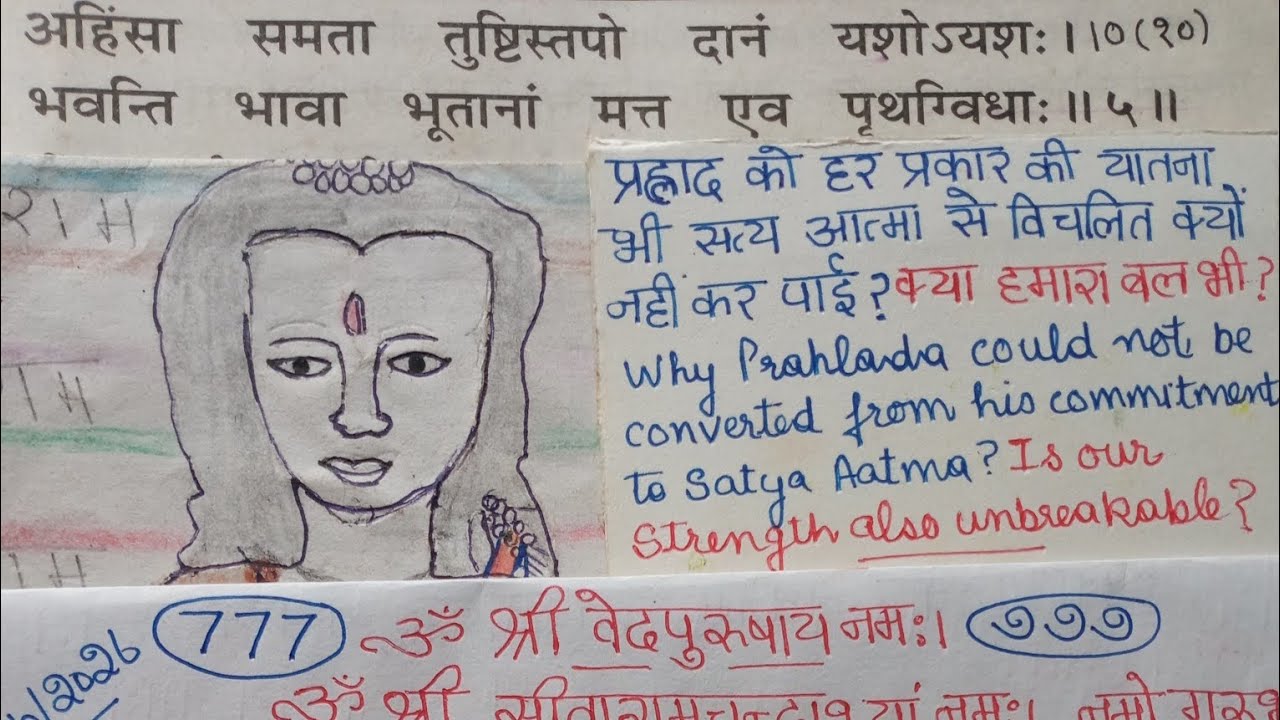 अहिंसा समता तुष्टिस्तपो दानं यशोऽयशः।।०(१०)
भवन्ति भावा भूतानां मत्त एव पृथग्विधाः॥५॥
प्रह्लाद को हर प्रकार की यातना
भी सत्य आत्मा से विचलित क्यों
नहीं कर पाई? क्या हमारा बल भी?
Why Prahlada could not be
converted from his commitment
to Satya Aatma? Is our
strength also unbreakable?
राम
राम
777 ॐ श्री वेदपुरुषाय नमः। ७७७
/2026
ॐ श्री सीतारामचन्द्राभ्यां नमः। नमो